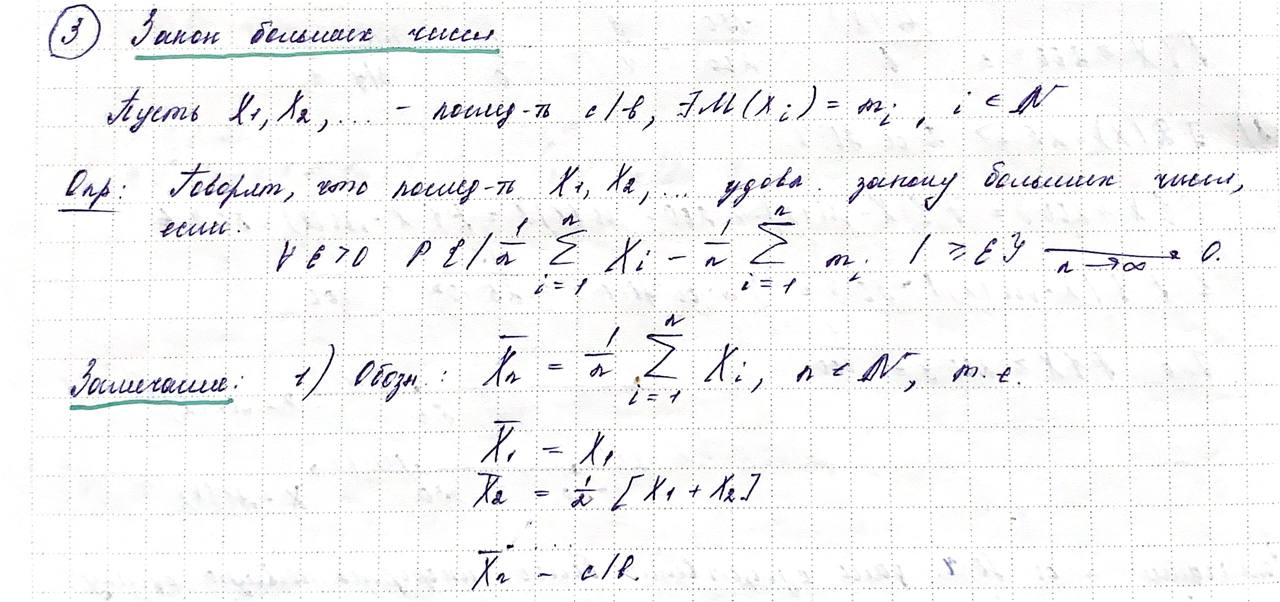 ③ Закон больших чисел
Пусть X₁, X₂, ... – послед-ть с/в, ∃ M(Xᵢ) = mᵢ, i ∈ N
Опр: Говорят, что послед-ть X₁, X₂, ... удовл. закону больших чисел,
если:
∀ ε > 0 P{|1/n ∑ᵢ₌₁ⁿ Xᵢ – 1/n ∑ᵢ₌₁ⁿ mᵢ| ≥ ε} ⟶ 0. n→∞
Замечание: 1) Обозн: X̅ₙ = 1/n ∑ᵢ₌₁ⁿ Xᵢ, n ∈ N, т.е.
X̅₁ = X₁
X̅₂ = 1/2 [X₁ + X₂]
.....
X̅ₙ – с/в.